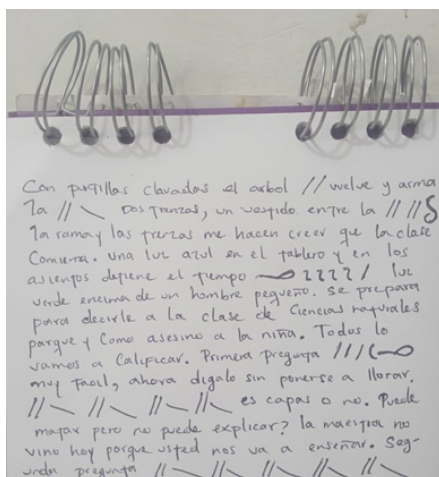 Con puntillas clavadas el arbol // vuelve y arma
la // \ Dos Trenzas, un vestido entre la // // S
la rama y las trenzas me hacen creer que la clase
Comienza. Una luz azul en el tablero y en los
asientos detiene el tiempo —∞ 2 2 2 2 / luz
verde encima de un hombre pequeño. Se prepara
para decirle a la clase de Ciencias naturales
porque y Como asesino a la niña. Todos lo
vamos a Calificar. Primera pregunta ///(—∞
muy facil, ahora digalo sin ponerse a llorar.
// \ // \ // \ // \ es capas o no. Puede
matar pero no puede explicar? la maestra no
vino hoy porque usted nos va a enseñar. Seg-
unda pregunta // \ // \ // \ // \ // \